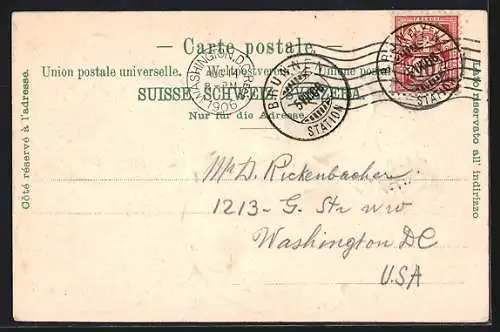 — Carte postale. —
Union postale universelle. Weltpostverein. Unione postale
SUISSE. SCHWEIZ. SVIZZERA
Nur für die Adresse
Côté réservé à l'adresse.
Lato riservato all' indirizzo
WASHINGTON, D.C.
1906
BRUNNEN
STATION
BRUNNEN
STATION
Mr D. Rickenbacher
1213 - G. Str NW
Washington DC
USA